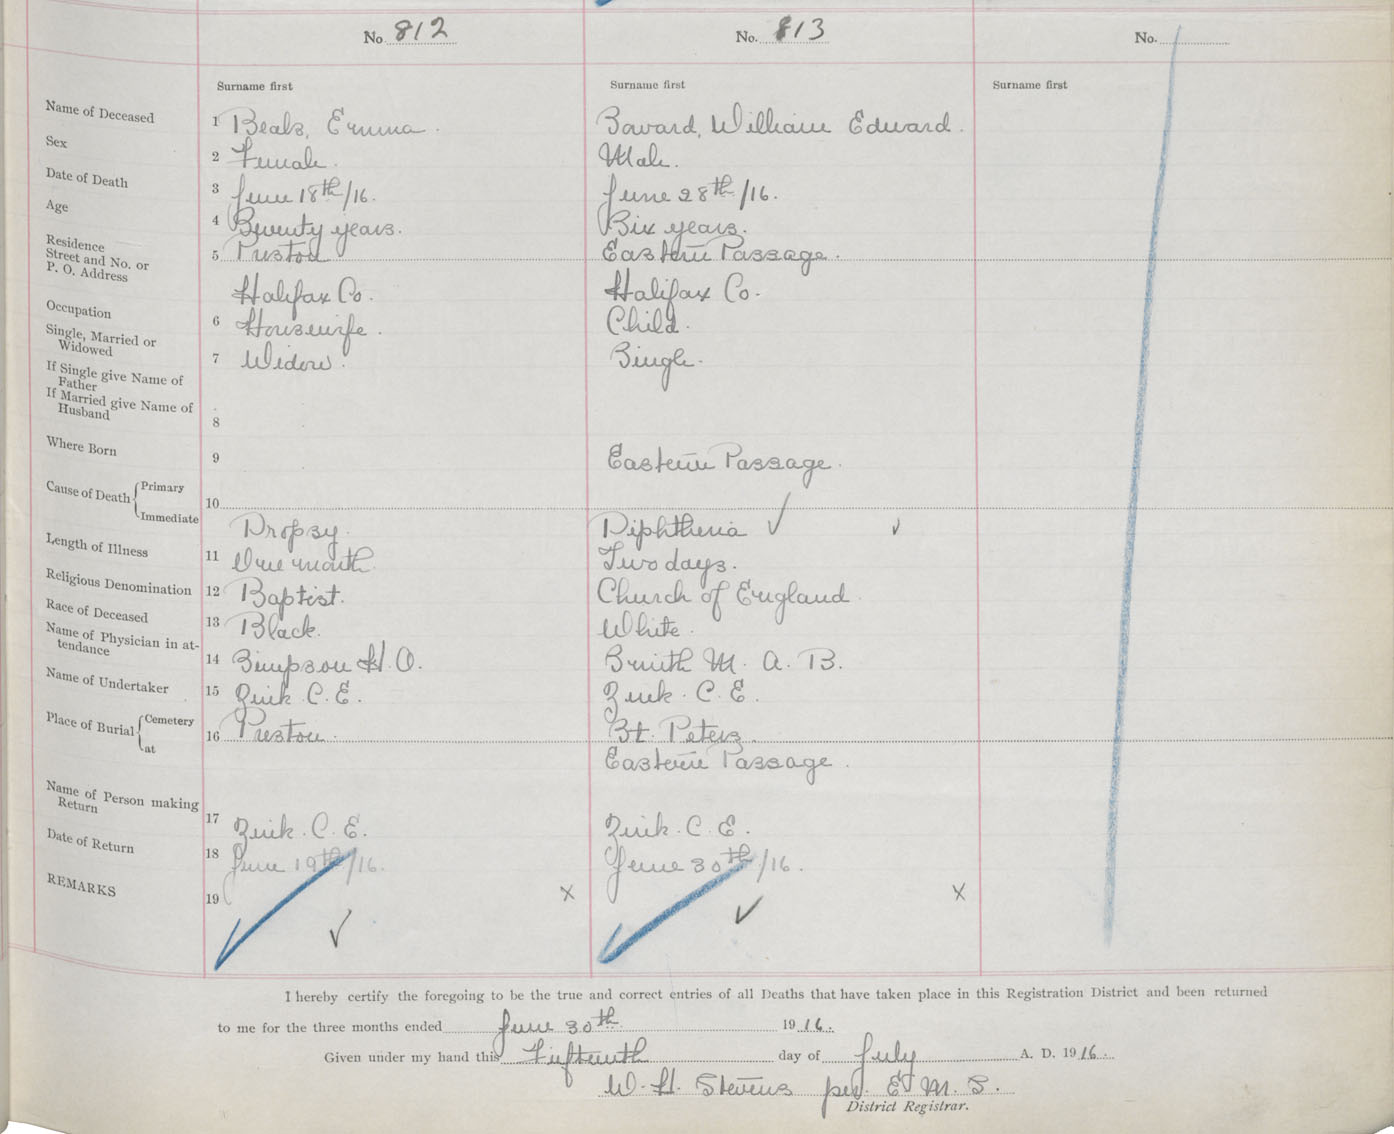 No. 812
No. 813
No.
Surname first
Surname first
Surname first
Name of Deceased 1 Beals, Emma. Saward, William Edward.
Sex 2 Female. Male.
Date of Death 3 June 18th/16. June 28th/16.
Age 4 Seventy years. Six years.
Residence
Street and No. or
P. O. Address
5 Preston Eastern Passage.
Halifax Co. Halifax Co.
Occupation 6 Housewife. Child.
Single, Married or
Widowed
7 Widow. Single.
If Single give Name of
Father
If Married give Name of
Husband
8
Where Born 9 Eastern Passage.
Cause of Death Primary 10
Immediate Dropsy. Diphtheria ✓ ✓
Length of Illness 11 One month. Two days.
Religious Denomination 12 Baptist. Church of England.
Race of Deceased 13 Black. White.
Name of Physician in at-
tendance
14 Simpson H. O. Smith M. A. B.
Name of Undertaker 15 Zink. C. E. Zink. C. E.
Place of Burial Cemetery 16 Preston. St. Peters.
at Eastern Passage.
Name of Person making
Return
17 Zink. C. E. Zink. C. E.
Date of Return 18 June 19th/16. June 30th/16.
REMARKS 19 x x
✓ ✓
I hereby certify the foregoing to be the true and correct entries of all Deaths that have taken place in this Registration District and been returned
to me for the three months ended June 30th 1916.
Given under my hand this Fifteenth day of July A. D. 1916.
W. H. Stevens per. E M. S.
District Registrar.